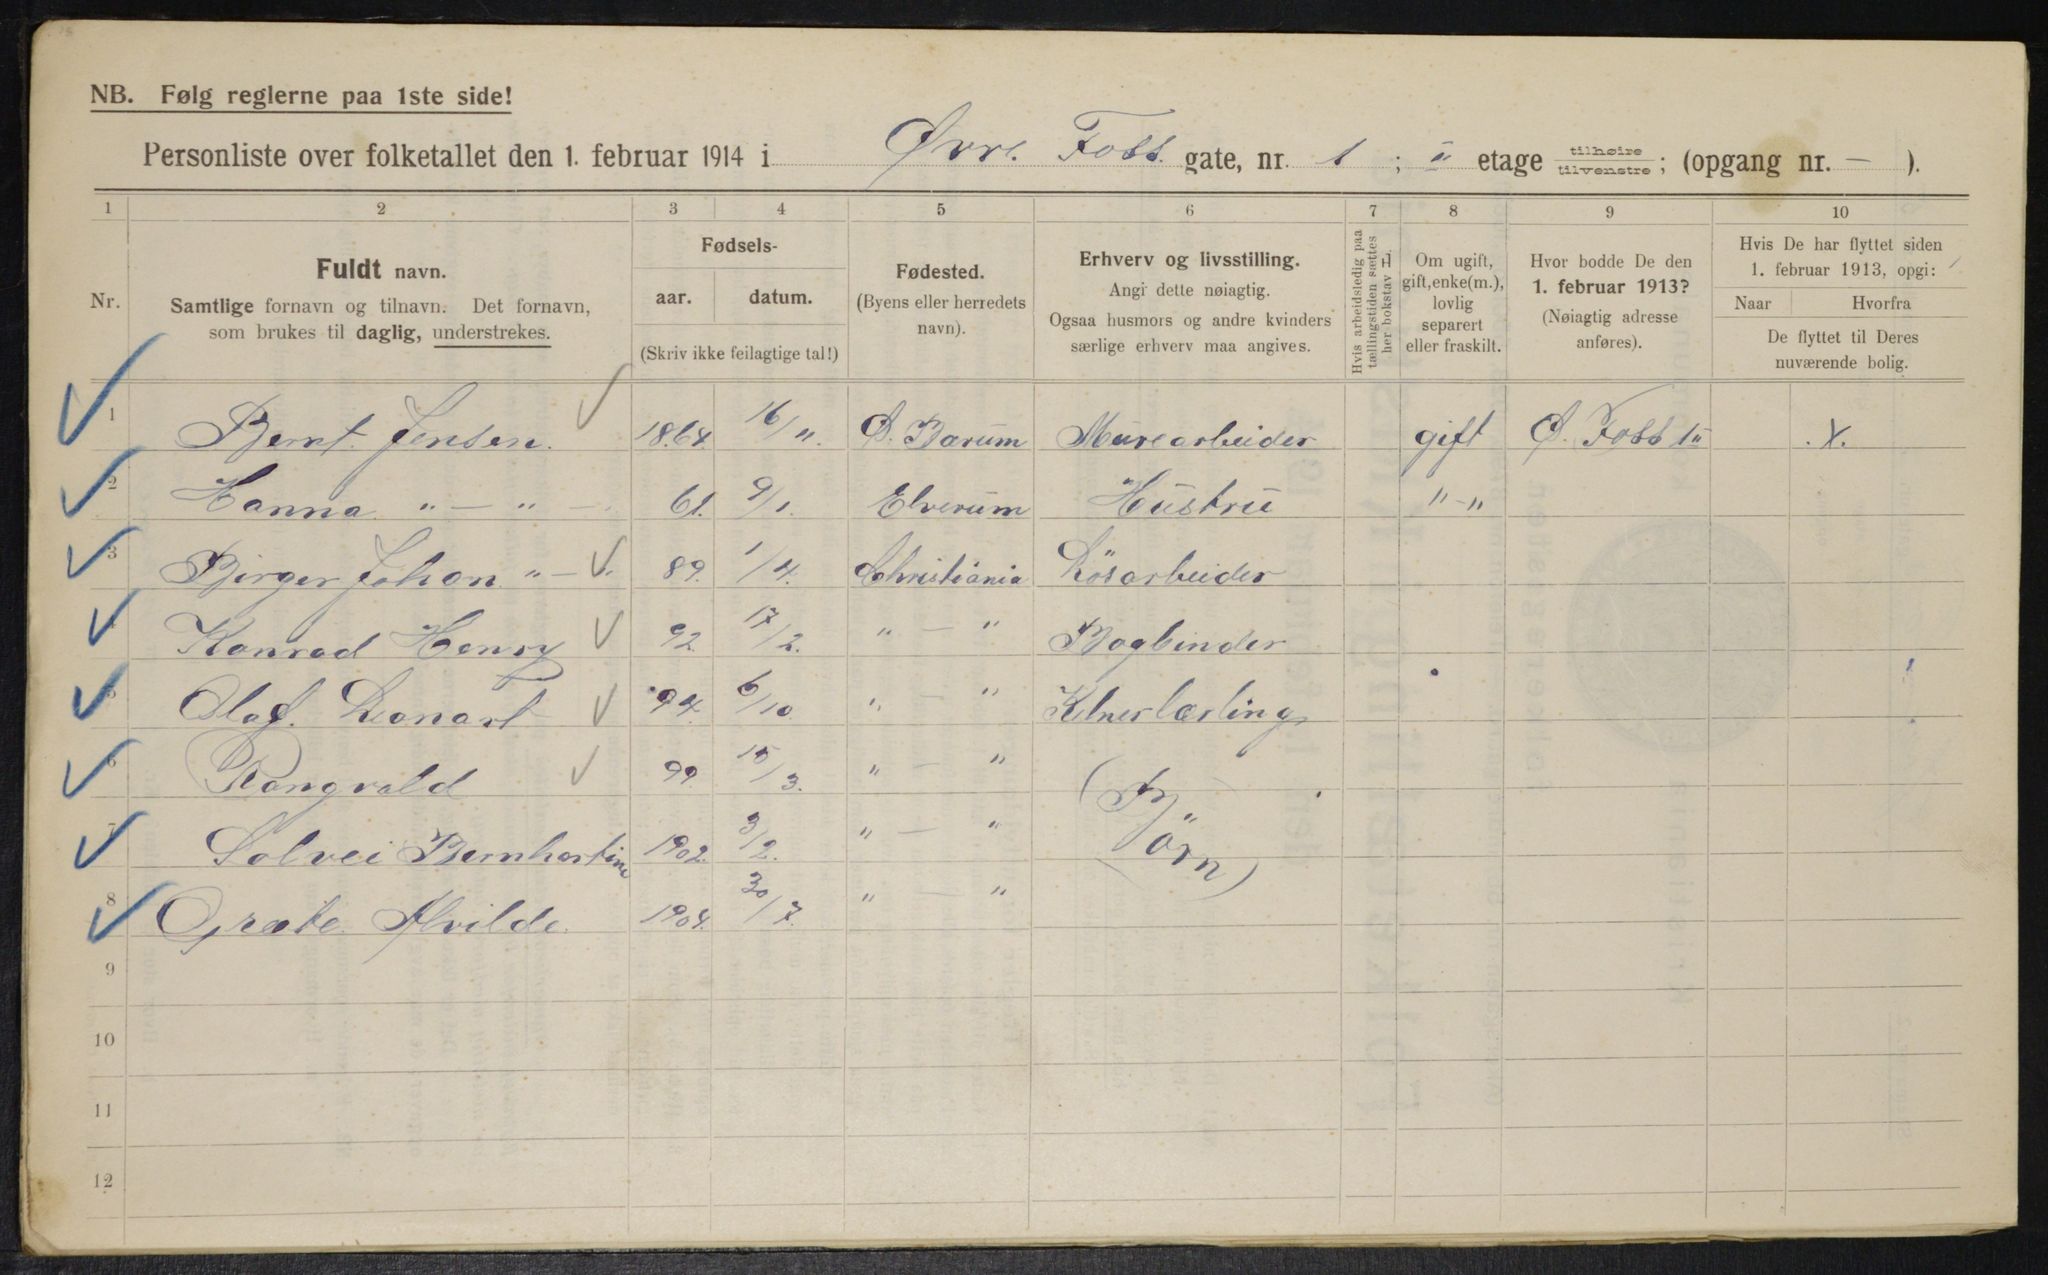 NB. Følg reglerne paa 1ste side!
Personliste over folketallet den 1. februar 1914 i Øvre Foss gate, nr. 1 ; II etage tilhøire tilvenstre ; (opgang nr. — ).
1 2 3 4 5 6 7 8 9 10
Nr.
Fuldt navn.
Samtlige fornavn og tilnavn. Det fornavn,
som brukes til daglig, understrekes.
Fødsels-
aar. datum.
(Skriv ikke feilagtige tal!)
Fødested.
(Byens eller herredets
navn).
Erhverv og livsstilling.
Angi dette nøiagtig.
Ogsaa husmors og andre kvinders
særlige erhverv maa angives.
Hvis arbeidsledig paa
tællingstiden sættes
her bokstav L.
Om ugift,
gift, enke(m.),
lovlig
separert
eller fraskilt.
Hvor bodde De den
1. februar 1913?
(Nøiagtig adresse
anføres).
Hvis De har flyttet siden
1. februar 1913, opgi:
Naar Hvorfra
De flyttet til Deres
nuværende bolig.
1 Bernt. Jensen. 1864. 16/11. Ø. Barum Murearbeider gift Ø. Foss 1 II .X.
2 Hanna " — " — 61. 9/1. Elverum Hustru " - "
3 Birger Johan " — " 89. 1/4. Christiania Lösarbeider
4 Konrad Henry 92 17/2. " — " Bogbinder
5 Olaf. Leonart 94. 6/10 " — " Kelnerlærling
6 Rangvald 99. 15/3. " — " (Börn)
7 Solvei Bernhartine 1902. 3/2. " — "
8 Græte Alvilde. 1904. 30/7. " — "
9
10
11
12